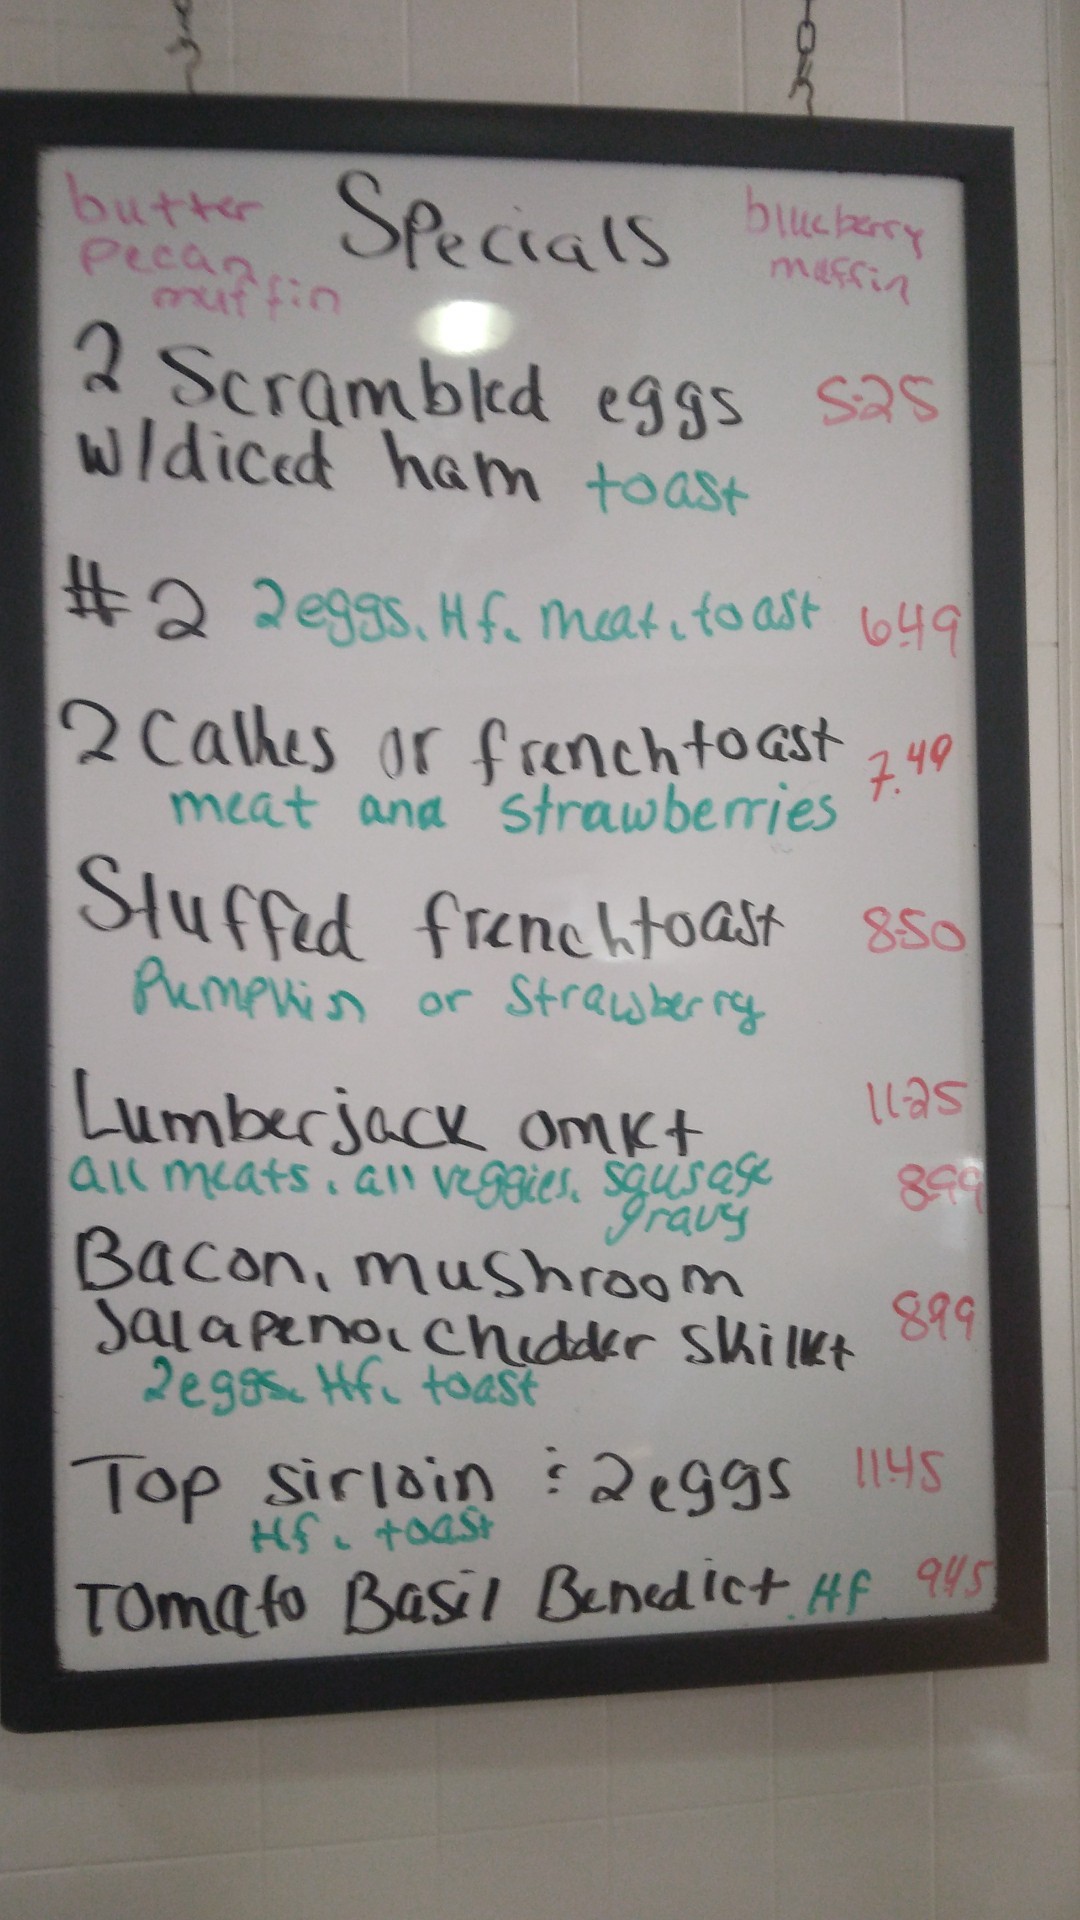 butter
pecan
muffin
Specials
blueberry
muffin
2 Scrambled eggs 5.25
w/diced ham toast
#2 2eggs, Hf, meat, toast 6.49
2 Cakes or frenchtoast 7.49
meat and strawberries
Stuffed frenchtoast 8.50
Pumpkin or Strawberry
Lumberjack omlet 11.25
all meats, all veggies, sausage 8.99
gravy
Bacon, mushroom
Jalapeno, chedder skillet 8.99
2eggs, Hf, toast
Top sirloin : 2eggs 11.45
Hf, toast
Tomato Basil Benedict, Hf 9.45